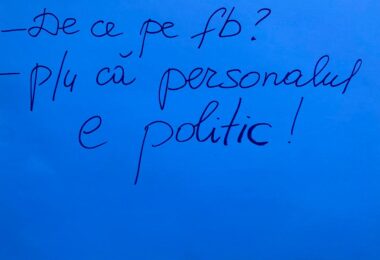 – De ce pe fb?
– p/u că personalul
e politic!